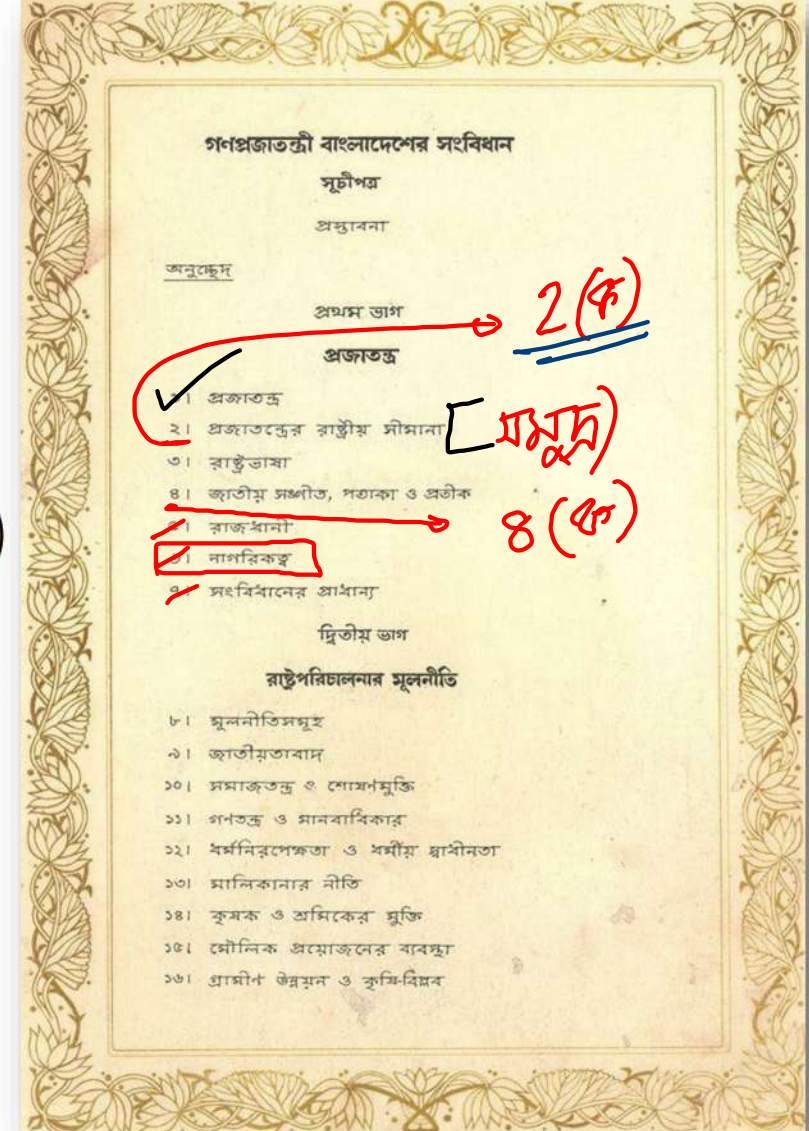 গণপ্রজাতন্ত্রী বাংলাদেশের সংবিধান
সূচীপত্র
প্রস্তাবনা
অনুচ্ছেদ
প্রথম ভাগ
2 (ক)
প্রজাতন্ত্র
১। প্রজাতন্ত্র
২। প্রজাতন্ত্রের রাষ্ট্রীয় সীমানা [সমুদ্র)
৩। রাষ্ট্রভাষা
৪। জাতীয় সঙ্গীত, পতাকা ও প্রতীক
৪ (ক)
৫। রাজধানী
৬। নাগরিকত্ব
৭। সংবিধানের প্রাধান্য
দ্বিতীয় ভাগ
রাষ্ট্রপরিচালনার মূলনীতি
৮। মূলনীতিসমূহ
৯। জাতীয়তাবাদ
১০। সমাজতন্ত্র ও শোষণমুক্তি
১১। গণতন্ত্র ও মানবাধিকার
১২। ধর্মনিরপেক্ষতা ও ধর্মীয় স্বাধীনতা
১৩। মালিকানার নীতি
১৪। কৃষক ও শ্রমিকের মুক্তি
১৫। মৌলিক প্রয়োজনের ব্যবস্থা
১৬। গ্রামীণ উন্নয়ন ও কৃষি-বিপ্লব